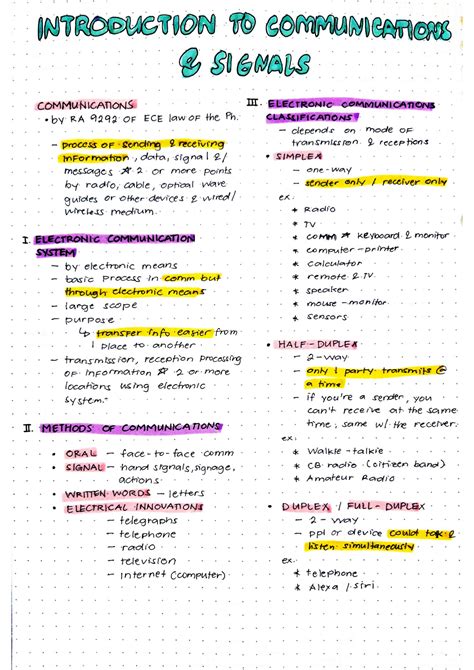 INTRODUCTION TO COMMUNICATIONS
& SIGNALS
COMMUNICATIONS
• by RA 9292 OF ECE law of the Ph.
- process of sending & receiving
information, data, signal &/
messages 2 or more points
by radio, cable, optical wave
guides or other devices & wired/
wireless medium.
I. ELECTRONIC COMMUNICATION
SYSTEM
- by electronic means
- basic process in comm but
through electronic means
- large scope
- purpose
↳ transfer info easier from
1 place to another
- transmission, reception processing
of information 2 or more
locations using electronic
system.
II. METHODS OF COMMUNICATIONS
• ORAL - face-to-face comm
• SIGNAL - hand signals, signage,
actions
• WRITTEN WORDS - letters
• ELECTRICAL INNOVATIONS
- telegraphs
- telephone
- radio
- television
- internet (computer)
III. ELECTRONIC COMMUNICATIONS
CLASSIFICATIONS
- depends on mode of
transmission & receptions
• SIMPLEX
- one-way
- sender only / receiver only
ex.
* Radio
* TV
* comm keyboard & monitor
* computer-printer
* calculator
* remote & TV
* speaker
* mouse-monitor
* sensors
• HALF-DUPLEX
- 2-way
- only 1 party transmits @
a time
- if you're a sender, you
can't receive at the same
time, same w/ the receiver.
ex.
* Walkie-talkie
* CB radio (citizen band)
* Amateur Radio
• DUPLEX / FULL-DUPLEX
- 2-way
- ppl or device could talk &
listen simultaneously
ex.
* telephone
* Alexa / Siri